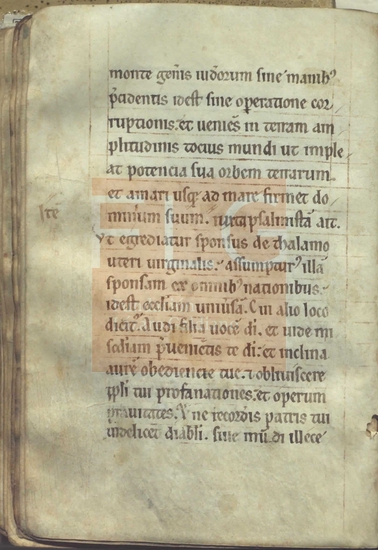 monte gen̄is iudeorum sine manib⁹
p̄cidentis idest sine operatione cor
ruptionis. et ueniēs in terram am
plitudinis tocius mundi ut imple
at potencia sua orbem terrarum.
et a mari usq; ad mare firmet do
minium suum. iuxta psalmistā ait.
Ite
Vt egrediatur sponsus de thalamo
uteri uirginalis. assumptur⁹ illā
sponsam ex omnib⁹ nationibus.
idest eccliam uniūsā. Cui alio loco
dicit̄. Audi filia uocē dī. et uide mi
sc̄diam p̄uenietis te dī. et inclina
aurē obediencie tue. ⁊ obliuiscere
tui profanationes. et operum
prauitates. Vt ne recordis patris tui
uidelicet diabli. siue mūdi illece